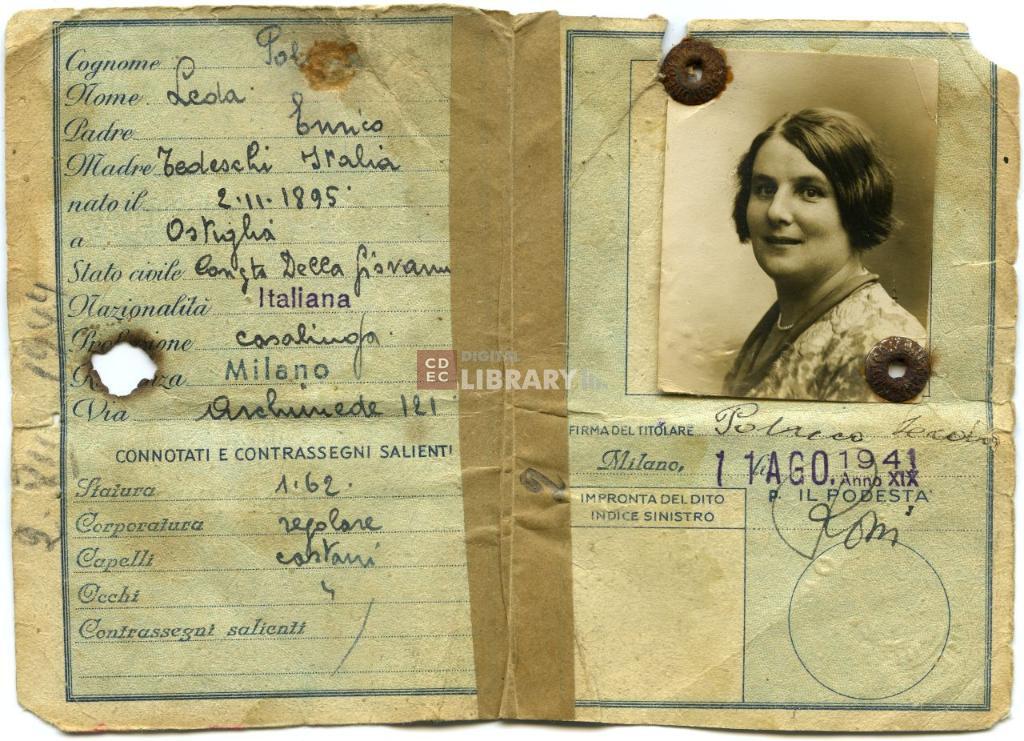 Cognome
Nome Leda
Padre Enrico
Madre Tedeschi Italia
nato il 2·11·1895
a Ostiglia
Stato civile Della
Nazionalità Italiana
casalinga
Milano
Via Archimede 121
CONNOTATI E CONTRASSEGNI SALIENTI
Statura 1.62
Corporatura regolare
Capelli castani
Occhi
Contrassegni salienti
CD EC DIGITAL LIBRARY
FIRMA DEL TITOLARE
Milano, 1 1 AGO. 1941
Anno XIX
P. IL PODESTÀ
IMPRONTA DEL DITO
INDICE SINISTRO